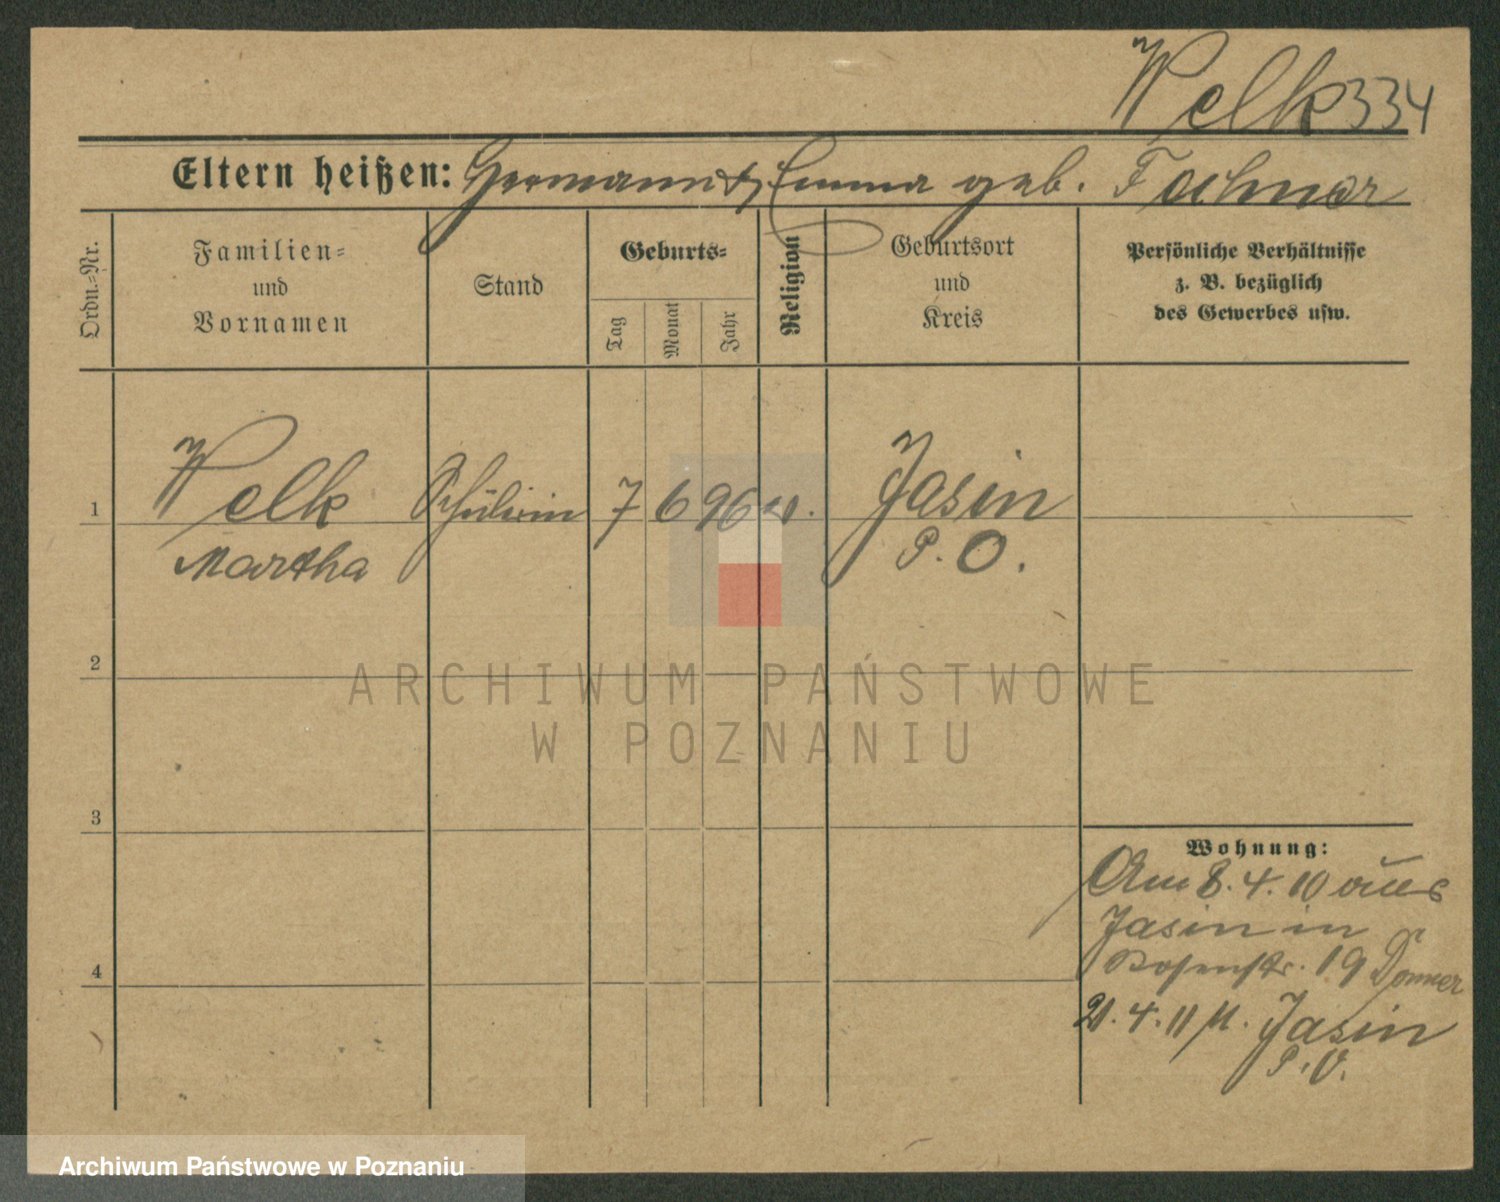 Welk 334
Eltern heißen: Hermann & Emma geb. Fechner
Ordn.-Nr.
Familien-
und
Vornamen
Stand
Geburts-
Tag
Monat
Jahr
Religion
Geburtsort
und
Kreis
Persönliche Verhältnisse
z. B. bezüglich
des Gewerbes usw.
1
Welk
Martha
Schülerin
7
6
96
ev.
Jasin
P. O.
2
ARCHIWUM PAŃSTWOWE
W POZNANIU
3
4
Wohnung:
Am 8. 4. 10 aus
Jasin in
Posenstr. 19 Donner
21. 4. 11 n. Jasin
P. O.
Archiwum Państwowe w Poznaniu